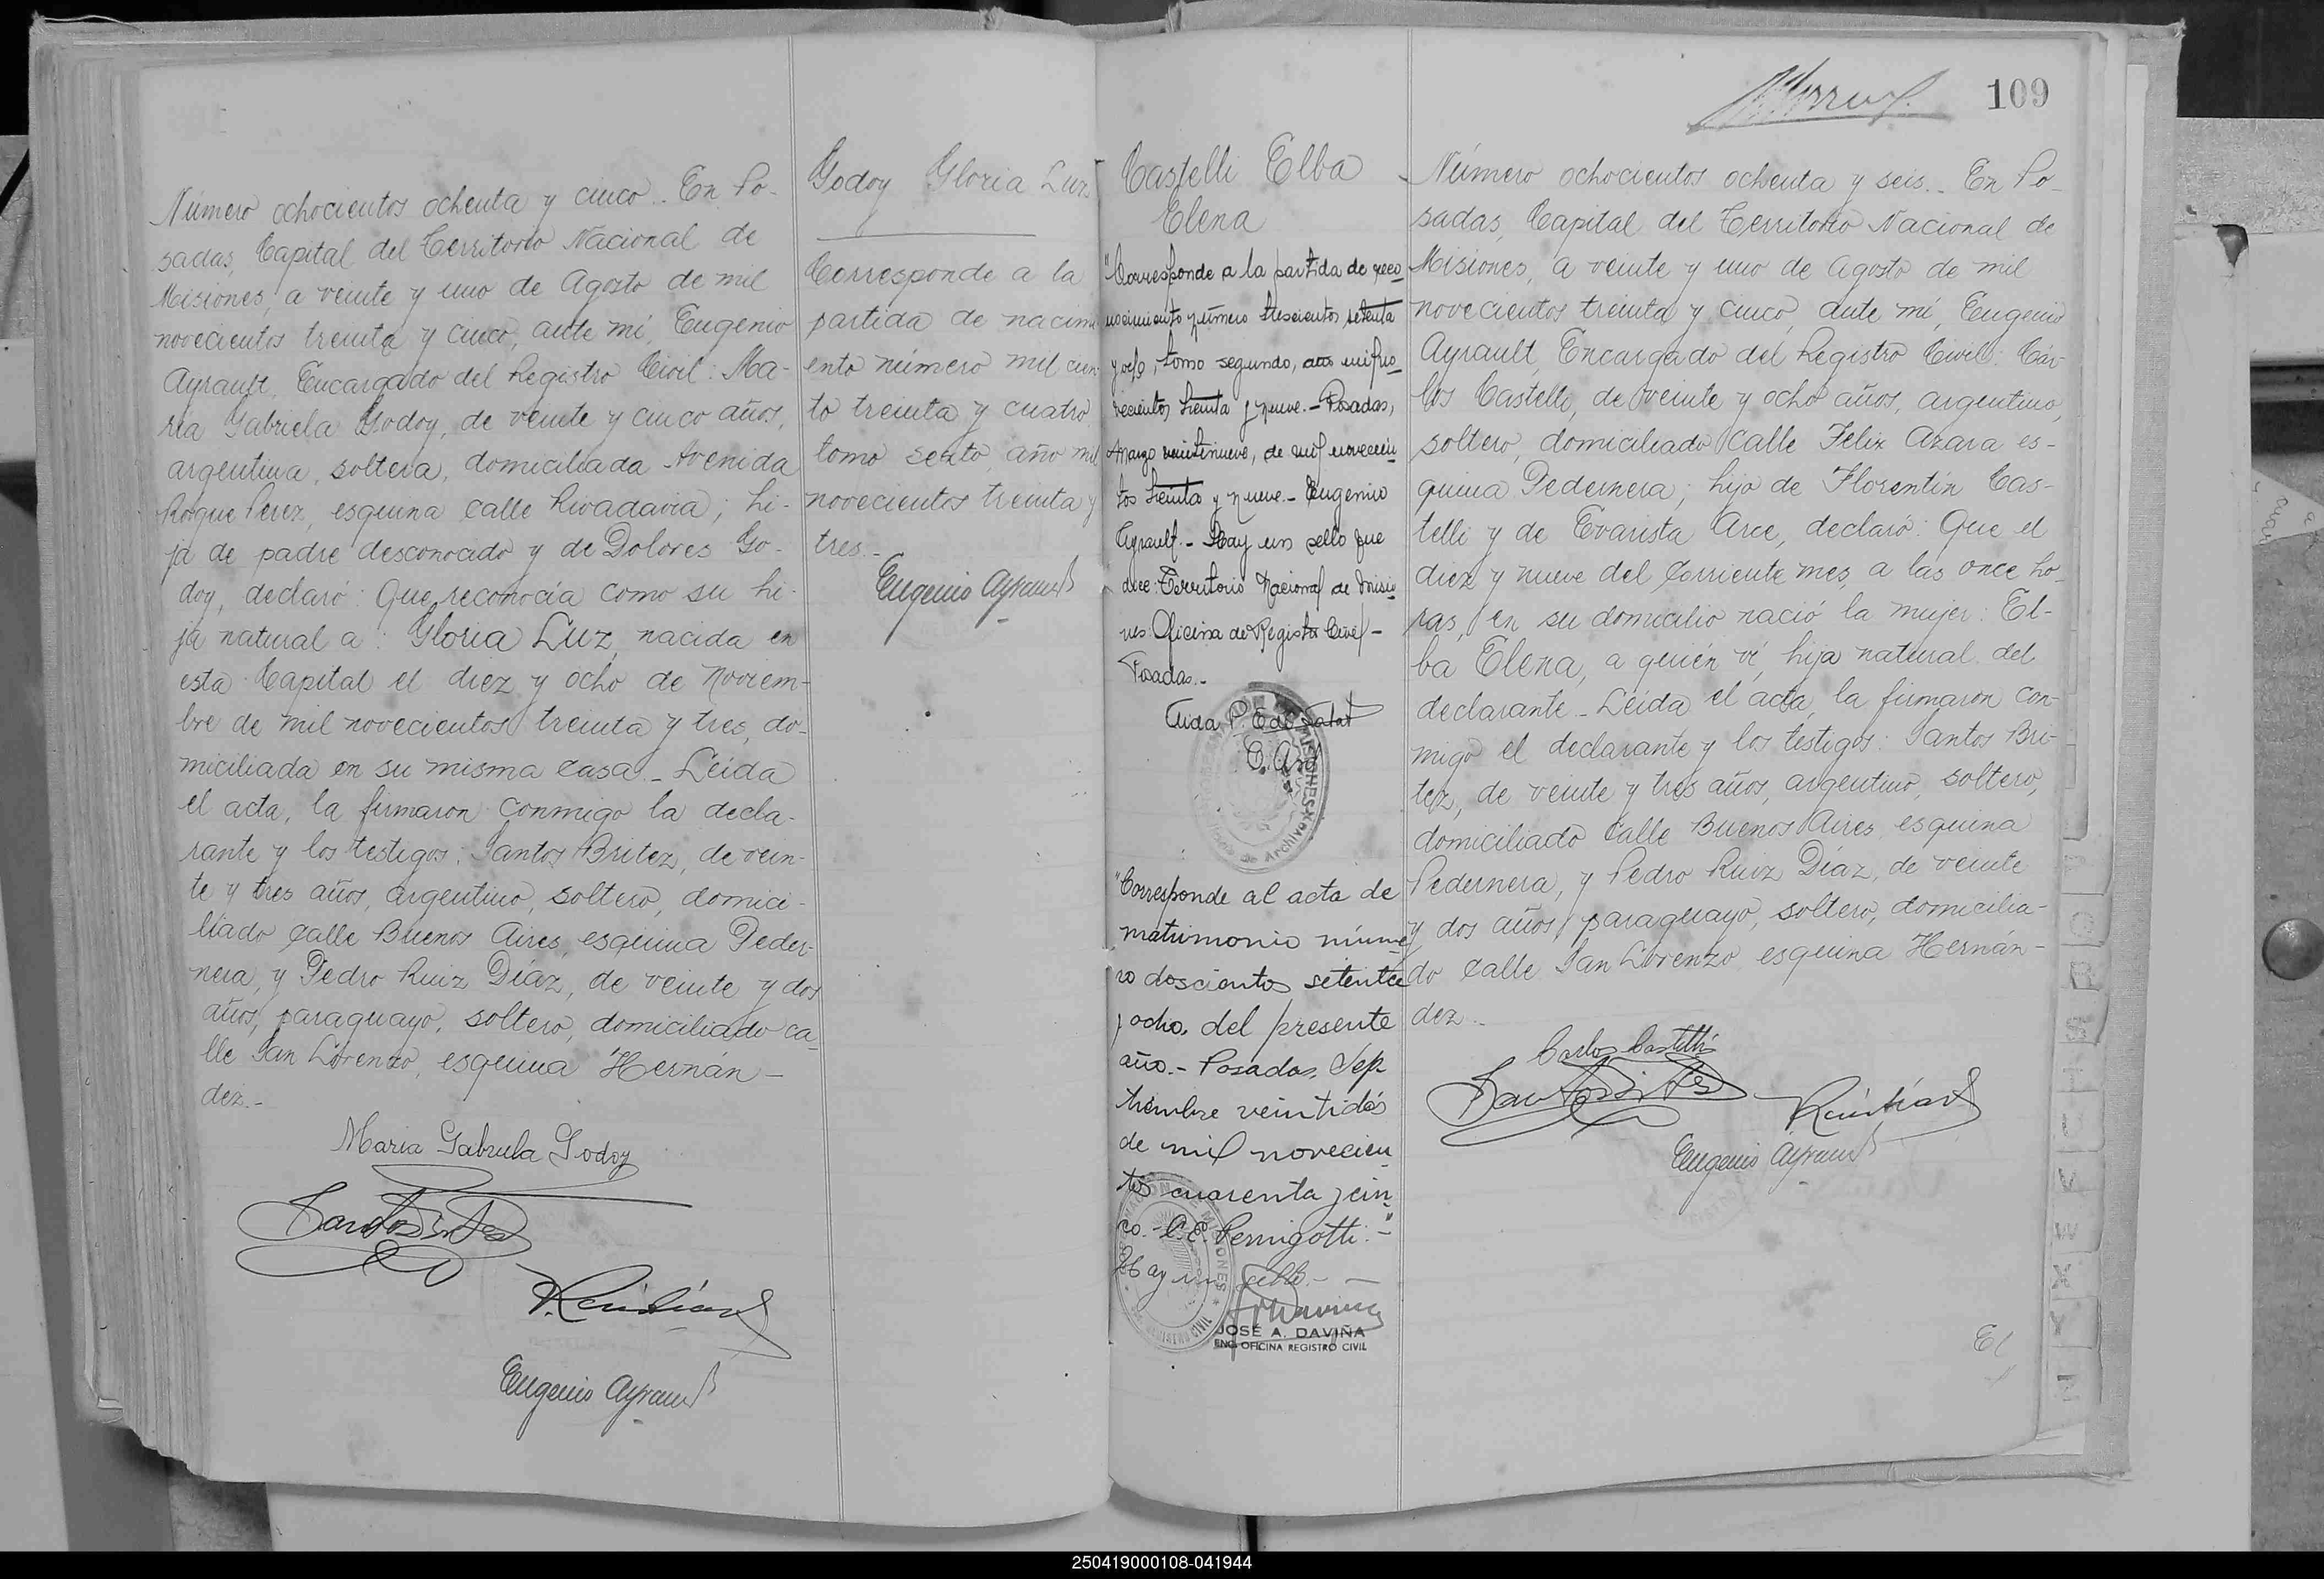 Número ochocientos ochenta y cinco.. En Po-
sadas, Capital del Territorio Nacional de
Misiones, a veinte y uno de Agosto de mil
novecientos treinta y cinco, ante mí, Eugenio
Ayrault, Encargado del Registro Civil: Ma-
ría Gabriela Godoy, de veinte y cinco años,
argentina, soltera, domiciliada Avenida
Roque Perez, esquina calle Rivadavia; hi-
ja de padre desconocido y de Dolores Go-
doy, declaró: Que reconocía como su hi-
ja natural a: Gloria Luz, nacida en
esta Capital el diez y ocho de Noviem-
bre de mil novecientos treinta y tres, do-
miciliada en su misma casa.- Leída
el acta, la firmaron conmigo la decla-
rante y los testigos: Santos Britez, de vein-
te y tres años, argentino, soltero, domici-
liado calle Buenos Aires, esquina Peder-
nera, y Pedro Ruiz Díaz, de veinte y dos
años, paraguayo, soltero, domiciliado ca-
lle San Lorenzo, esquina Hernán-
dez.-
Maria Gabriela Godoy
Eugenio Ayrault
Godoy Gloria Luz
Corresponde a la
partida de naci
ento número mil cien-
to treinta y cuatro
tomo sexto, año mil
novecientos treinta y
tres.-
Eugenio Ayrault
Castelli Elba
Elena
"Corresponde a la partida de reco
nocimiento número trescientos setenta
y ocho, tomo segundo, año mil no
vecientos treinta y nueve.- Posadas,
Marzo veintinueve, de mil novecien
tos treinta y nueve.- Eugenio
Ayrault.- Hay un sello que
dice: Territorio Nacional de Misio
nes: Oficina de Registro Civil -
Posadas.-
Aida
"Corresponde al acta de
matrimonio núme
ro doscientos setenta
y ocho, del presente
año.- Posadas, Sep
tiembre veintidós
de mil novecien
tos cuarenta y cin
co.- C. E. Pernigotti."-
Hay un sello.-
JOSÉ A. DAVIÑA
ENC. OFICINA REGISTRO CIVIL
109
Número ochocientos ochenta y seis.. En Po-
sadas, Capital del Territorio Nacional de
Misiones, a veinte y uno de Agosto de mil
novecientos treinta y cinco, ante mí, Eugenio
Ayrault, Encargado del Registro Civil: Cár-
los Castelli, de veinte y ocho años, argentino,
soltero, domiciliado calle Felix Azara es-
quina Pedernera; hijo de Florentín Cas-
telli y de Evarista Arce, declaró: Que el
diez y nueve del corriente mes, a las once ho-
ras, en su domicilio nació la mujer: El-
ba Elena, a quién ví, hija natural del
declarante.- Leída el acta, la firmaron con-
migo el declarante y los testigos: Santos Bri-
tez, de veinte y tres años, argentino, soltero,
domiciliado calle Buenos Aires esquina
Pedernera, y Pedro Ruiz Díaz, de veinte
y dos años, paraguayo, soltero, domicilia-
do calle San Lorenzo esquina Hernán-
dez.-
Carlos Castelli
Eugenio Ayrault
250419000108-041944